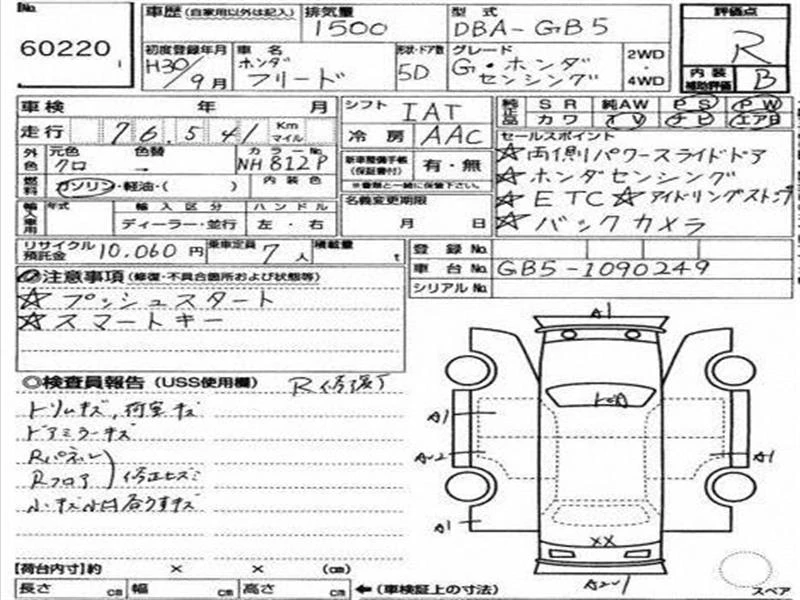 No. 60220
車歴 (自家用以外は記入) 排気量 型式 評価点
1500 DBA-GB5 R
初度登録年月 車名 形状・ドア数 グレード 2WD
H30/9月 ホンダ フリード 5D G・ホンダセンシング 4WD
内装補助評価 B
車検 年 月 シフト IAT 純正品 SR 純AW PS PW
カワ TV ナビ エアB
走行 76,541 Km マイル 冷房 AAC セールスポイント
外色 元色 色替 カラーNo. 新車整備手帳(保証書付) 有・無
クロ → NH812P ※書類と一緒に保管下さい。
☆両側パワースライドドア
☆ホンダセンシング
☆ETC ☆アイドリングストップ
☆バックカメラ
燃料 ガソリン・軽油・( ) 内装色 名義変更期限
月 日
輸入車用 年式 輸入区分 ハンドル
ディーラー・並行 左・右
リサイクル預託金 10,060円 乗車定員 7人 積載量 t
登録No.
車台No. GB5-1090249
シリアルNo.
注意事項 (修復・不具合箇所および状態等)
☆プッシュスタート
☆スマートキー
◎検査員報告 (USS使用欄) R修復了
トリムキズ、荷室キズ
ドアミラーキズ
Rパネル
Rフロア 修正セズミ
小キズ小凹 谷うすキズ
A1
A1
A2
A1
A1
XX
A2-1
【荷台内寸】約 × × (cm)
長さ cm 幅 cm 高さ cm ←(車検証上の寸法) スペア